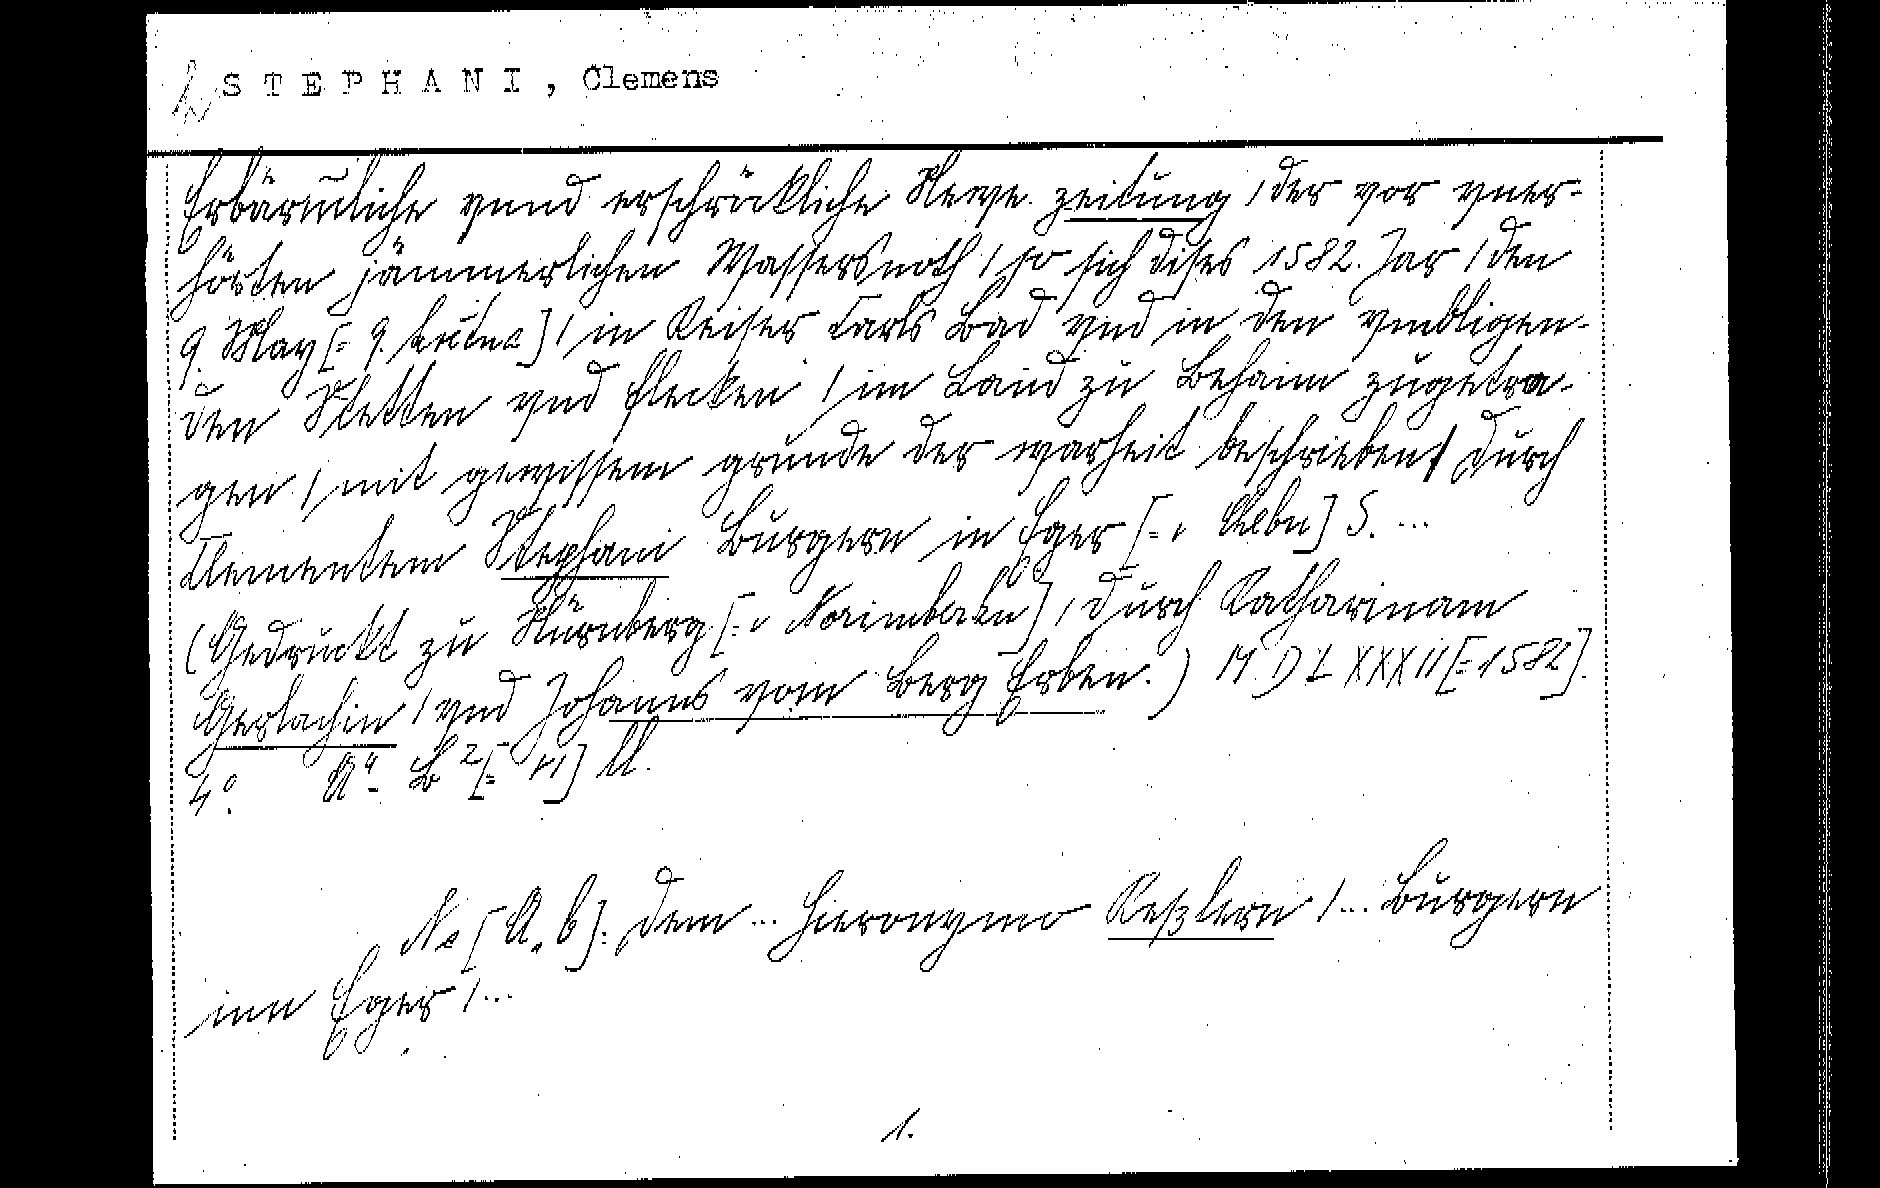 STEPHANI, Clemens
Erbärm̄liche vnnd erschröckliche Newe zeitung / der vor vner-
hörten jämmerlichen Wassersnoth / so sich dises 1582. Jar / den
9. May [= 9. května] / in Keiser Carls Bad vnd in den vmbligen-
den Stetten vnd flecken / im Land zu Behaim zugetra-
gen / mit gewissem grunde der warheit beschrieben / durch
Clementem Stephani Burgern in Eger [= v Chebu] S. ...
(Gedruckt zu Nürnberg [= v Norimberku] / durch Katharinam
Gerlachin / vnd Johanns vom Berg Erben.) M D L XXXII [= 1582].
4°. A⁴- B² [= ] ll.
Na [A, b]: Dem ... Hieronymo Keßlern / ... Burgern
inn Eger / ...
1.